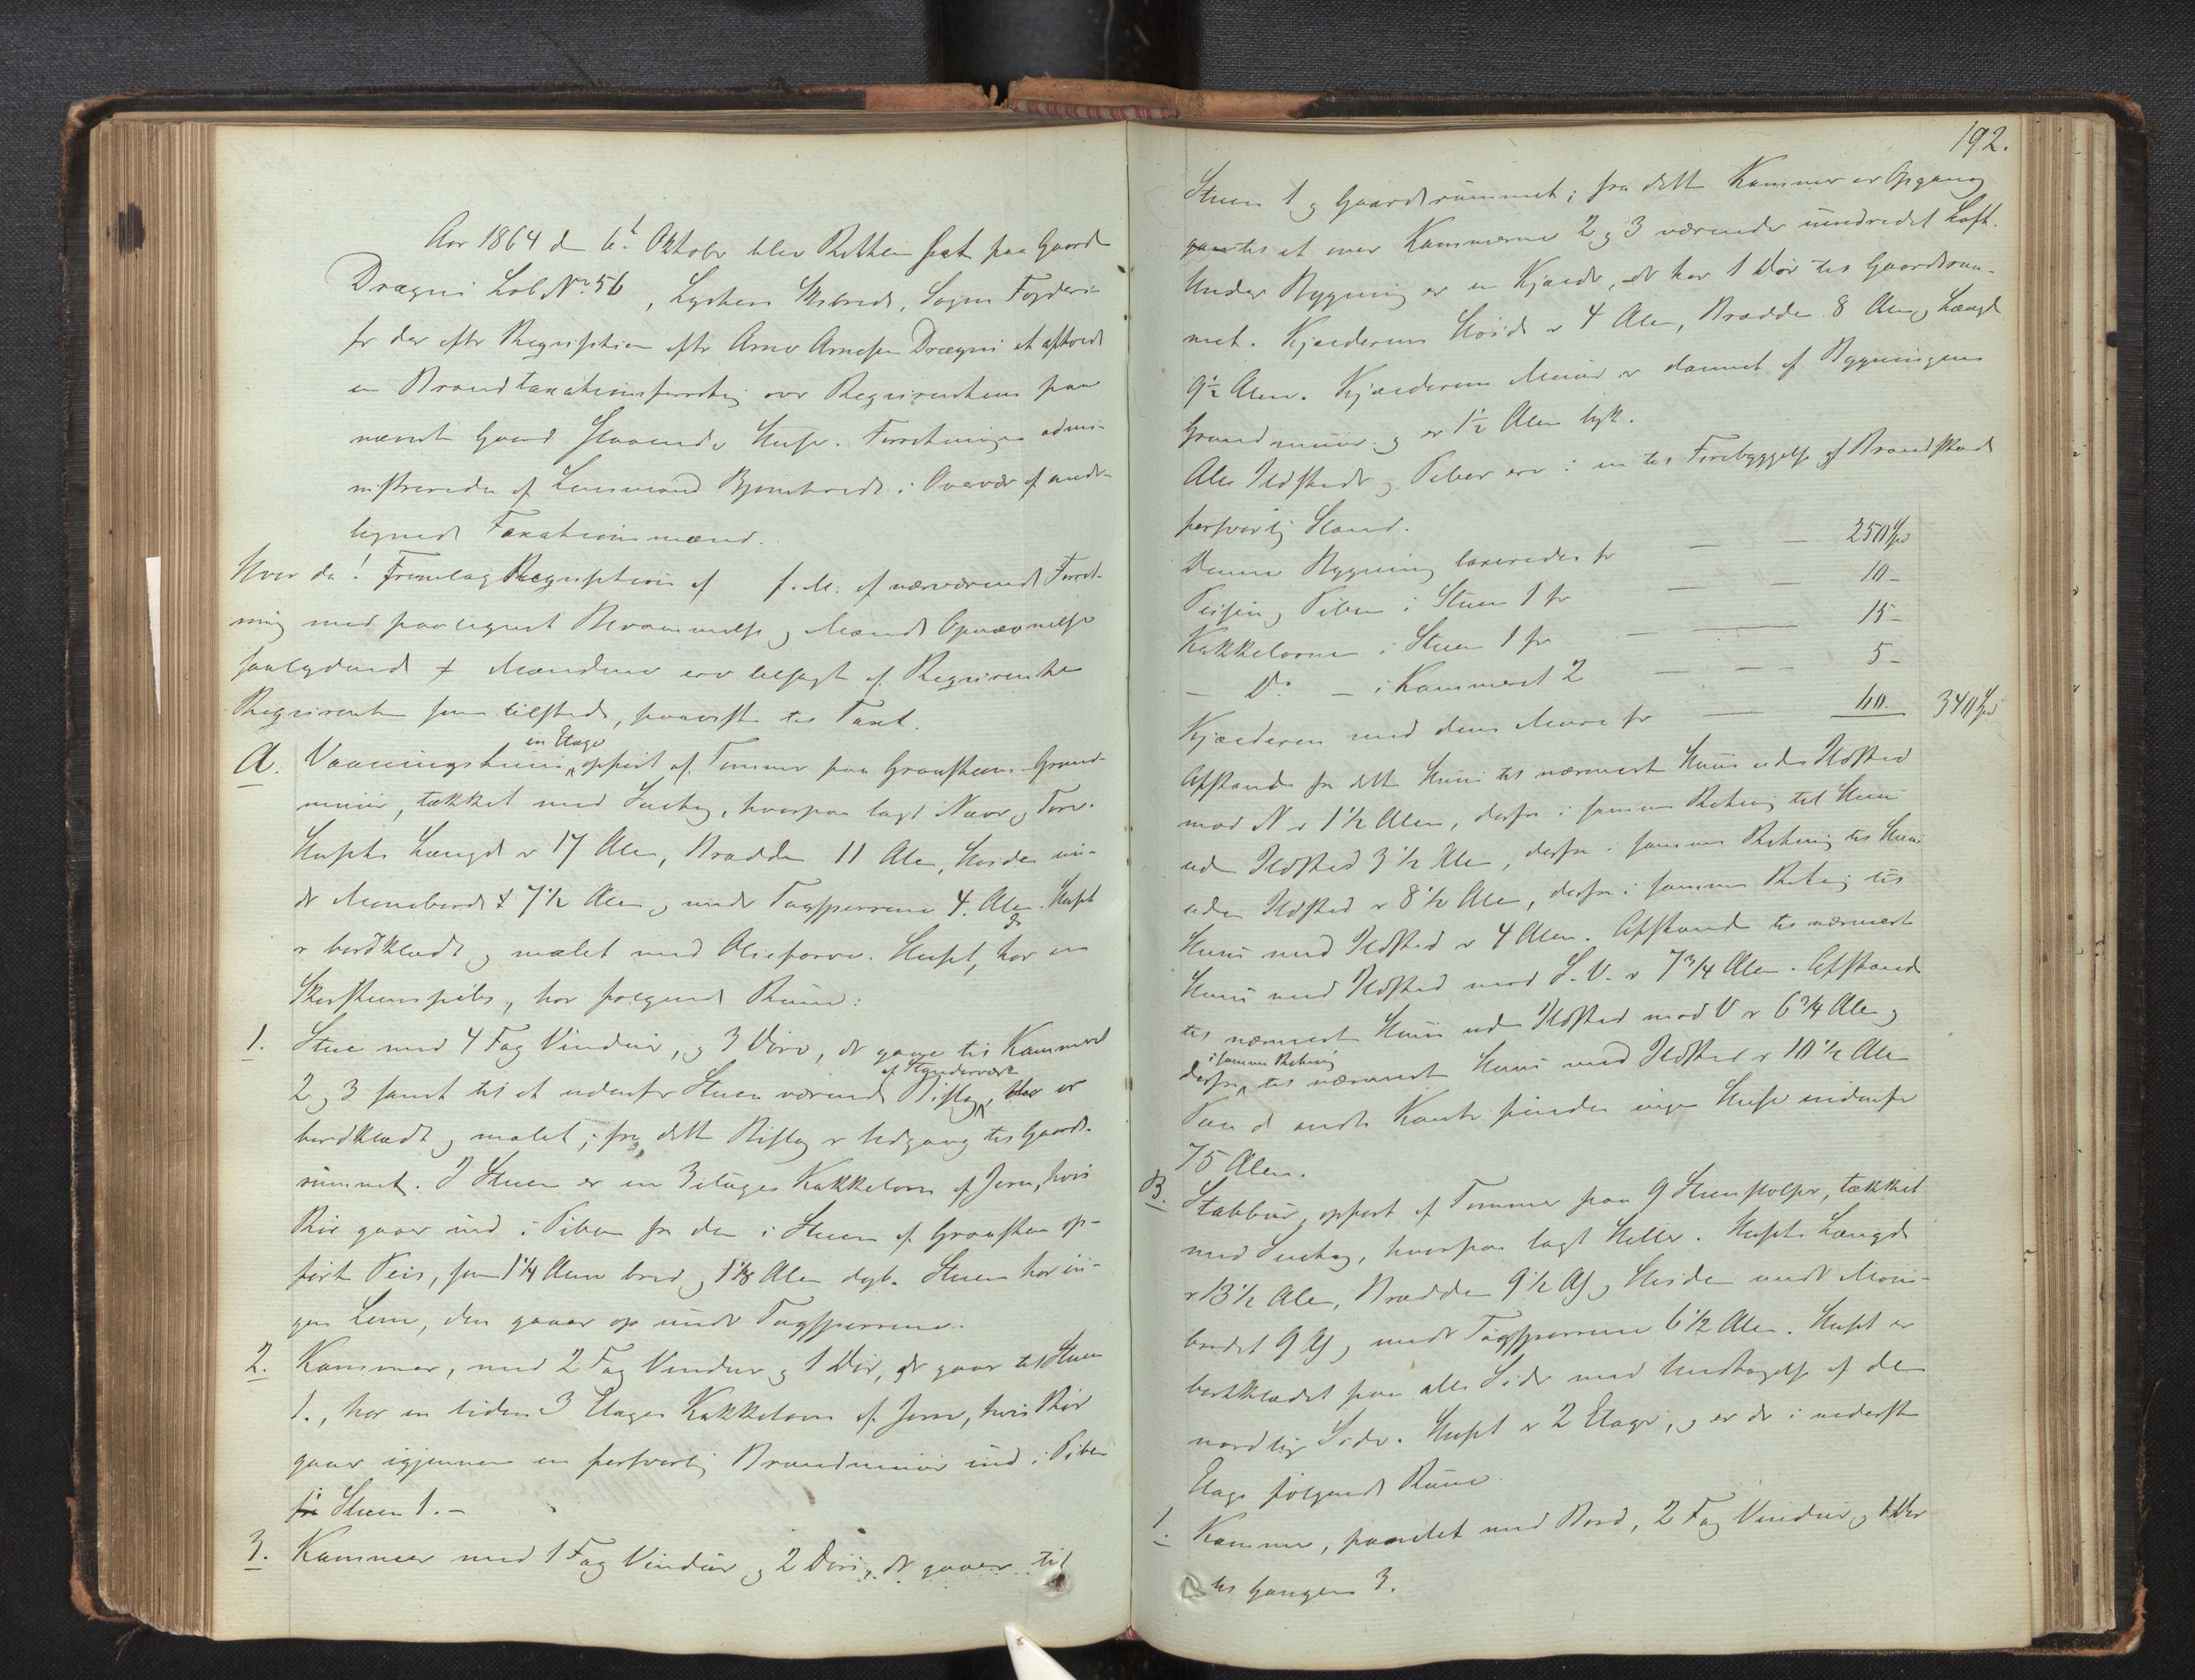 Aar 1864 d 6t Oktober blev Retten sat paa Gaard
Drægni Løb. No 56, Lysters Skibrede, Sogns Fogderi
for der efter Requisition efter Arne Arnesen Drægni at afholde
en Brandtaxationsforretng over Requirentens paa
nævnte Gaard staaende Huse. Forretningen admi-
nistreredes af Lensmand i Overvær af unde-
tegnede Taxationsmænd.
Hvor da! Fremlag Requisition af f. M. af nærværende Forret-
ning med paategnet Berammelse og Mænds Opnævnelse
saalydende ≠ Mændene ere tilsagte af Requirenten
Requirenten som tilstede, paaviste til Taxt.
A. Vaaningshuus, en Etage opført af Tømmer paa Graasteens Grund-
muur, tækket med Sutag, hvorpaa lagt Næver og Torv.
Husets Længde er 17 Alen, Bredden 11 Alen, Høiden un-
der Mønebordet 7 1/2 Alen og under Tagsperrene 4. Alen. Huset
er bordklædt og malet med Oliefarve. Huset, der har en
Skorsteenspibe, har følgende Rum:
1. Stue med 4 Fag Vinduer, og 3 Døre, der gaae til Kammerne
2 og 3 samt til et udenfor Stuen værende Bislag, af Stenderværk der er
bordklædt og malet; fra dette Bislag er Udgang til Gaards-
rummet. I Stuen er en 3 etages Kakkelovn af Jern, hvis
Rør gaaer ind i Piben fra den i Stuen af Graasteen op-
førte Peis, som 1 1/4 Alen bred og 1 1/8 Alen dyb. Stuen har in-
gen Lem, den gaaer op under Tagsperrene.
2. Kammer, med 2 Fag Vinduer og 1 Dør, der gaar til Stuen
1., har en liden 3 Etages Kakkelovn af Jern, hvis Rør
gaaer igjennem en forsvarlig Brandmuur ind i Piben
fra Stuen 1. –
3. Kammer med 1 Fag Vinduer og 2 Døre, der gaaer til
192.
Stuen 1 og Gaardsrummet; fra dette Kammer er Opgang
til et over Kammerne 2 og 3 værende uindredet Loft.
Under Bygning er en Kjælder, der har 1 Dør til Gaardsrum-
met. Kjælderens Høide er 4 Alen, Bredde 8 Alen og Længde
9 1/2 Alen. Kjælderens Muur er dannet af Bygningens
Grundmuur og er 1 1/2 Alen tyk.
Alle Ildsteder og Piber ere i en til Forebyggelse af Brandskade
forsvarlig Stand.
Denne Bygning taxeredes for — — 250 Spd
Peisen og Piben i Stuen 1 for — — 10 –
Kakkelovnen i Stuen 1 for — 15 –
– Do – i Kammeret 2 — — — 5 –
Kjælderen med dens Mure for — 60. 340 Spd
Afstanden fra dette Huus til nærmeste Huus uden Ildsted
mod N er 1 1/2 Alen, derfra i samme Retning til Huus
uden Ildsted 3 1/2 Alen, derfra i samme Retning til Huus
uden Ildsted er 8 1/2 Alen, derfra i samme Retning til
Huus med Ildsted er 4 Alen. Afstanden til nærmeste
Huus med Ildsted mod S. V. er 7 3/4 Alen. Afstand
til nærmeste Huus uden Ildsted mod V er 6 3/4 Alen og
derfra i samme Retning til nærmeste Huus med Ildsted er 10 1/2 Alen
Paa de andre Kanter findes ingen Huse indenfor
75 Alen.
B. Stabbur, opført af Tømmer paa 9 Steenstolper, tækket
med Sutag, hvorpaa lagt Heller. Husets Længde
er 13 1/2 Alen, Bredden 9 1/2 Al og Høiden under Møne-
bordet 9 Al og under Tagsperrene 6 1/2 Alen. Huset er
bordklædt paa alle Sider med Undtagelse af den
nordlige Side. Huset er 2 Etager, og er der i nederste
Etage følgende Rum
1. Kammer, paanelet med Bord, 2 Fag Vinduer og 1 Dør
til Gangen 3.